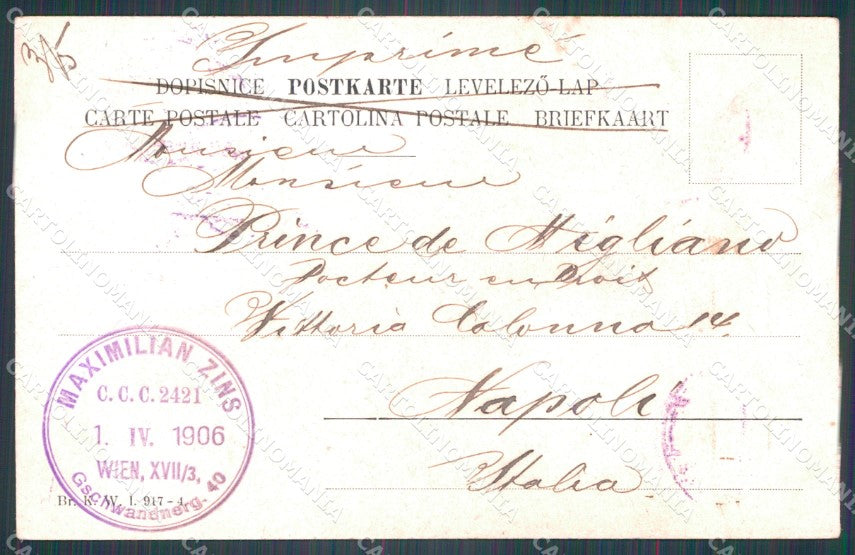 3/5
Imprimé
DOPISNICE POSTKARTE LEVELEZŐ-LAP
CARTE POSTALE CARTOLINA POSTALE BRIEFKAART
Monsieur
Monsieur
Prince de Migliano
Docteur en Droit
Vittoria Colonna 14.
Napoli
Italia.
MAXIMILIAN ZINS
C.C.C. 2421
1. IV. 1906
WIEN, XVII/3,
Gschwandnerg. 40
Br. K. W. I. 917-4
CARTOLINOMANIA